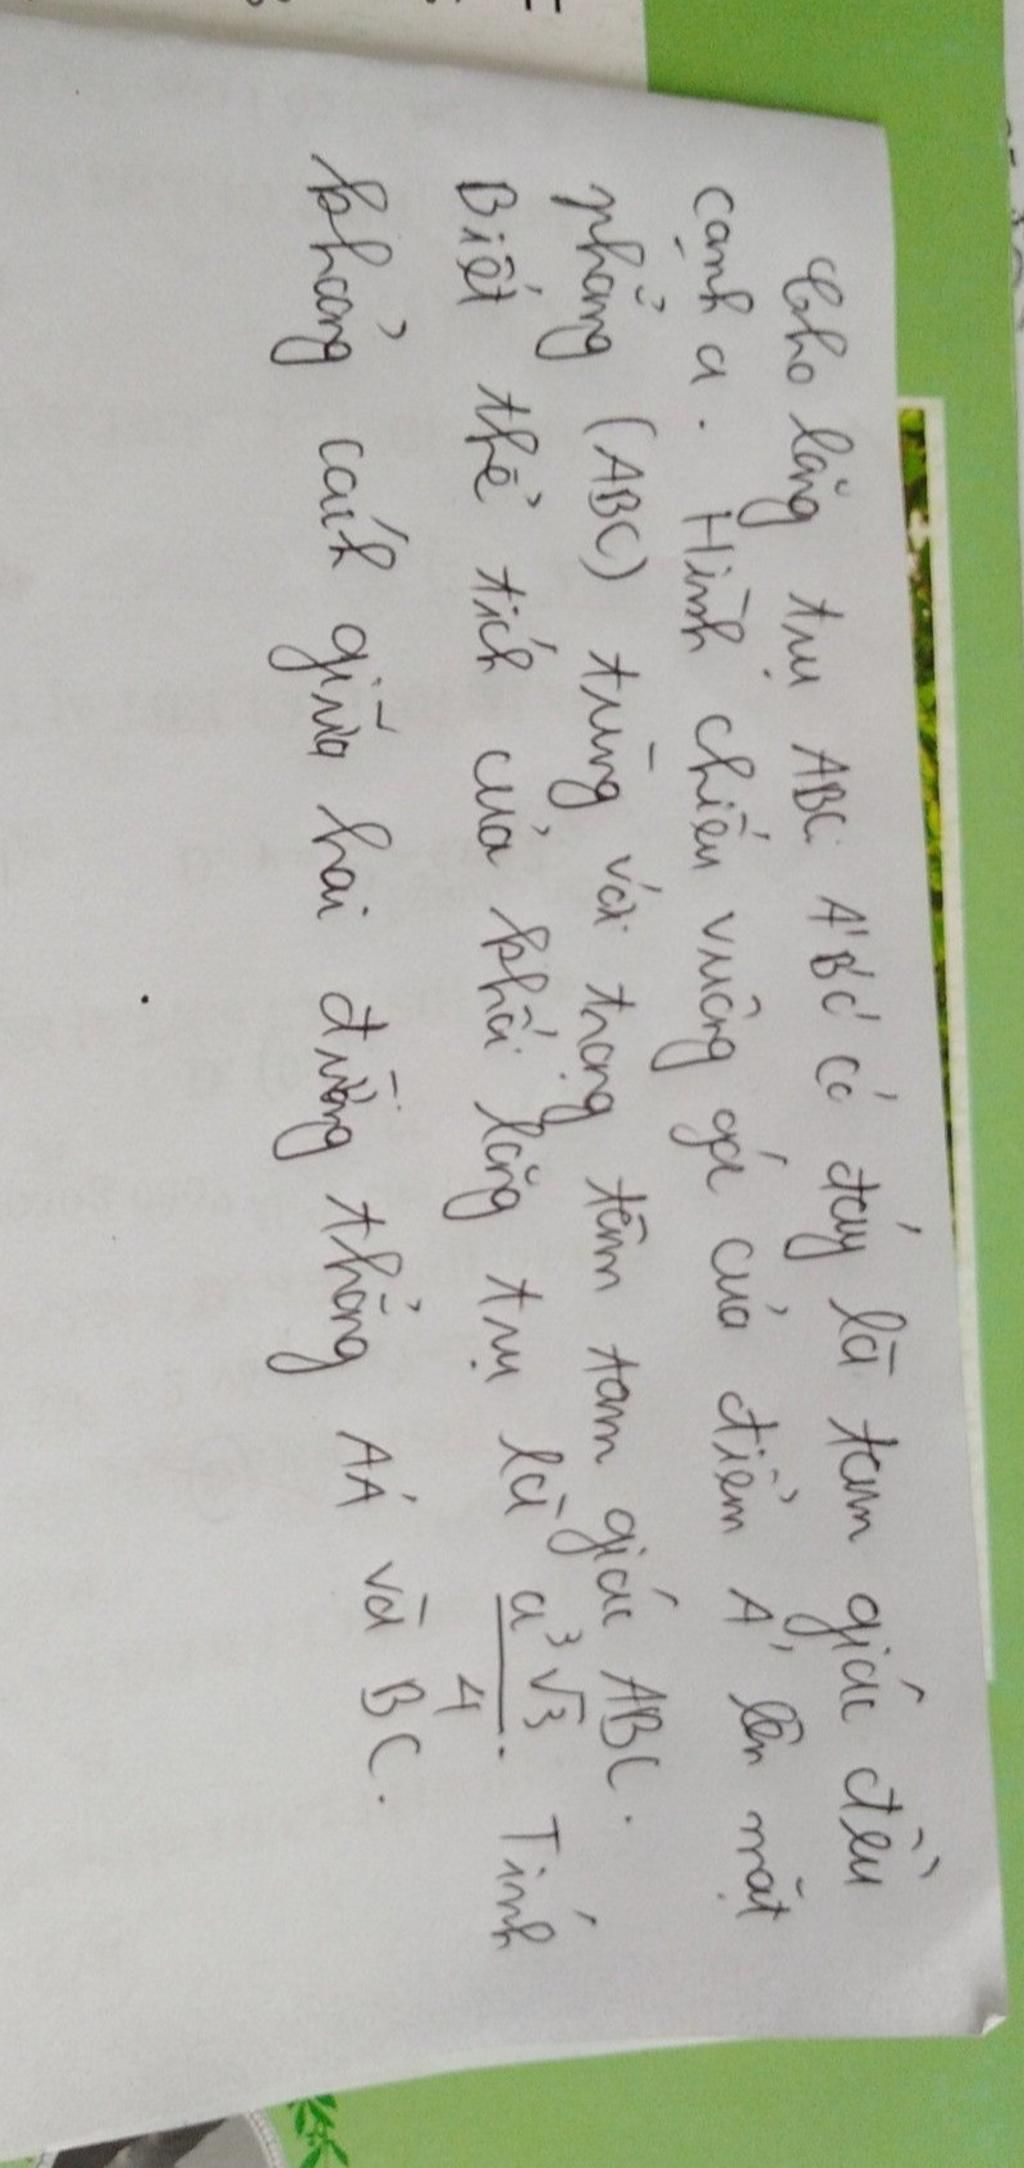 Cho lăng trụ ABC. A'B'C' có đáy là tam giác đều
cạnh a. Hình chiếu vuông góc của điểm A' lên mặt
phẳng (ABC) trùng với trọng tâm tam giác ABC.
Biết thể tích của khối lăng trụ là a³√3/4. Tính
khoảng cách giữa hai đường thẳng AA' và BC.